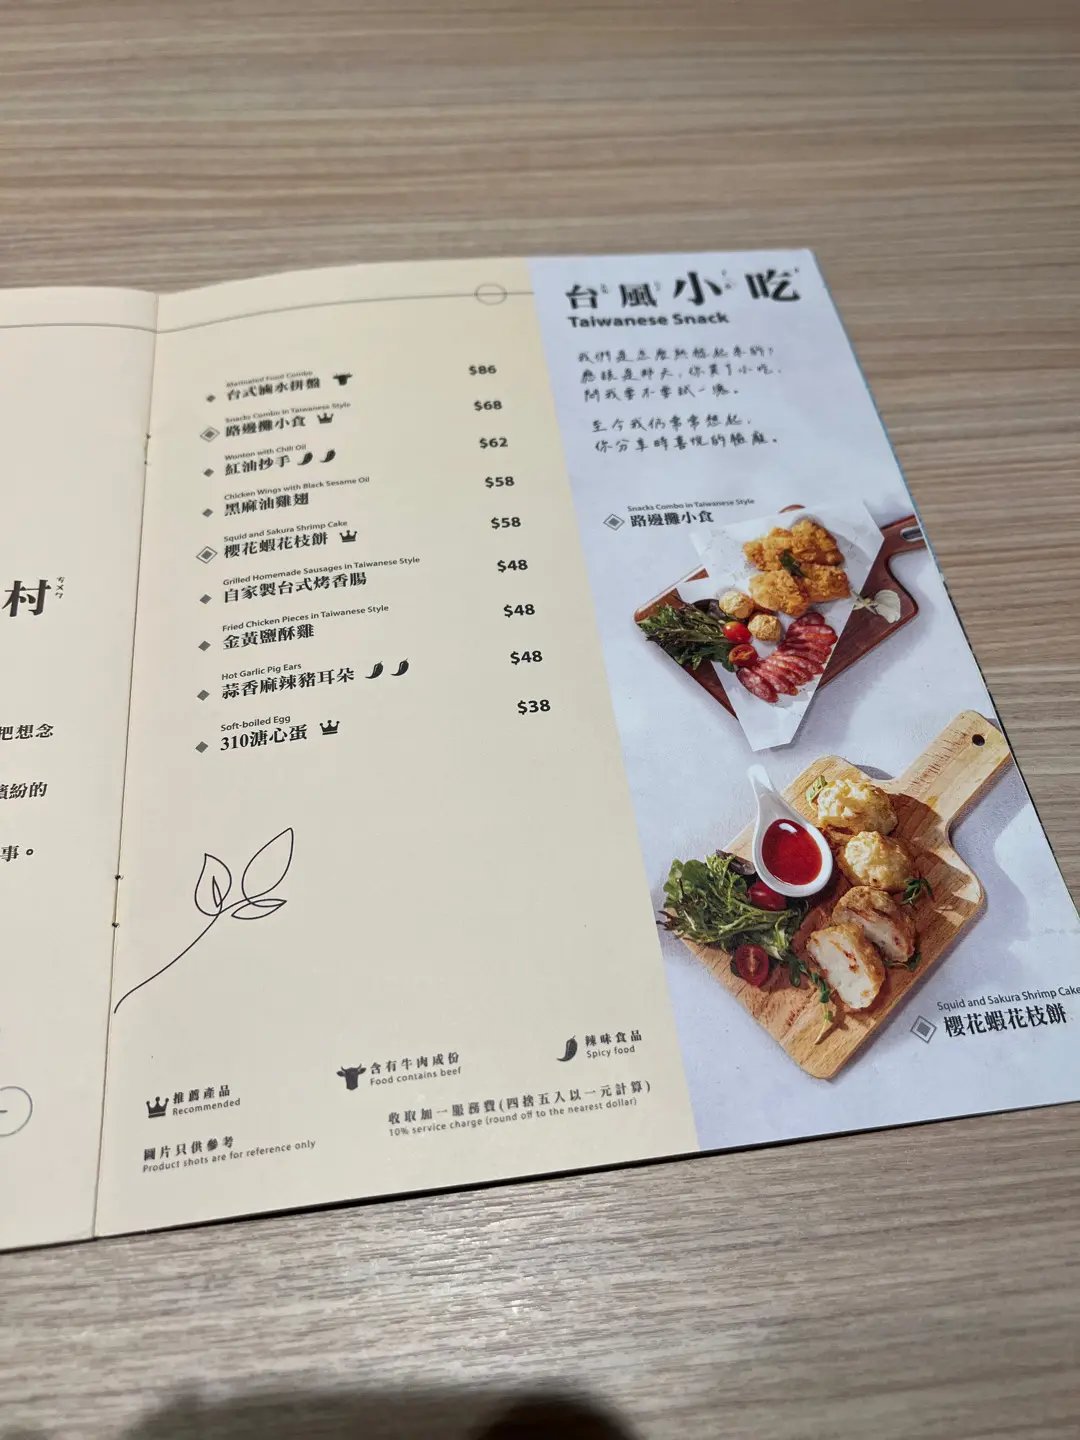 村
ㄘㄨㄣ
把想念
繽紛的
事。
Marinated Food Combo
台式滷水拼盤
$86
Snacks Combo in Taiwanese Style
路邊攤小食
$68
Wonton with Chili Oil
紅油抄手
$62
Chicken Wings with Black Sesame Oil
黑麻油雞翅
$58
Squid and Sakura Shrimp Cake
櫻花蝦花枝餅
$58
Grilled Homemade Sausages in Taiwanese Style
自家製台式烤香腸
$48
Fried Chicken Pieces in Taiwanese Style
金黃鹽酥雞
$48
Hot Garlic Pig Ears
蒜香麻辣豬耳朵
$48
Soft-boiled Egg
310溏心蛋
$38
推薦產品
Recommended
含有牛肉成份
Food contains beef
辣味食品
Spicy food
圖片只供參考
Product shots are for reference only
收取加一服務費(四捨五入以一元計算)
10% service charge (round off to the nearest dollar)
台風小吃
Taiwanese Snack
我們是怎麼熟絡起來的?
應該是那天,你買了小吃,
問我要不要試一塊。
至今我仍常常想起,
你分享時喜悅的臉龐。
Snacks Combo in Taiwanese Style
路邊攤小食
Squid and Sakura Shrimp Cake
櫻花蝦花枝餅